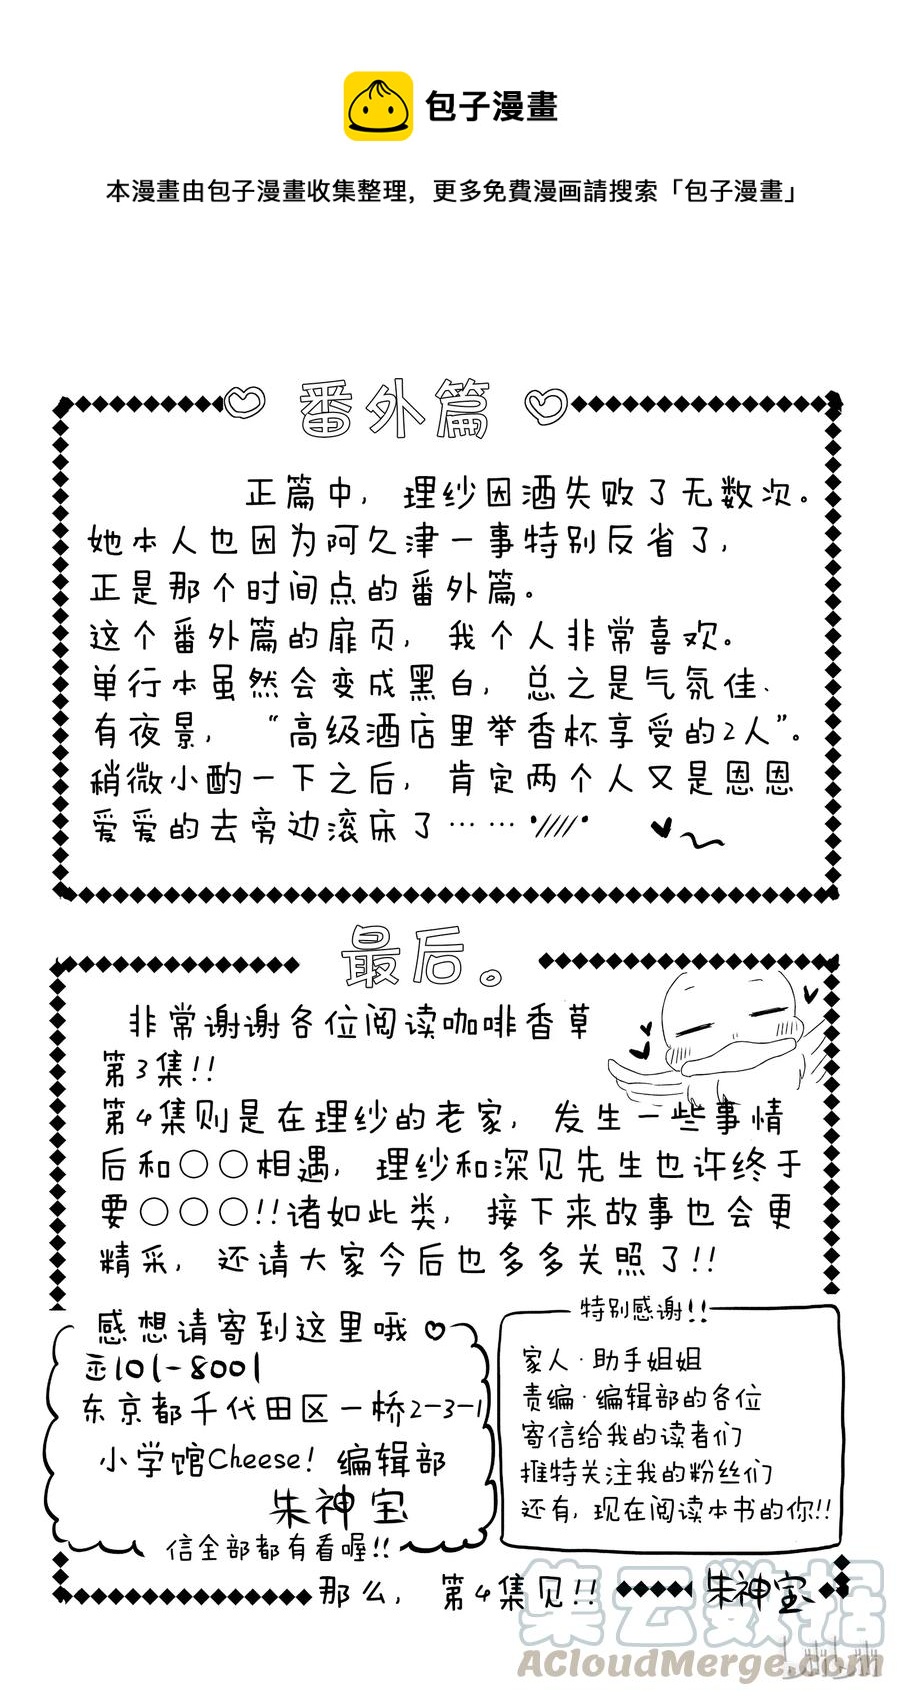 包子漫畫
本漫畫由包子漫畫收集整理，更多免費漫画請搜索「包子漫畫」
番外篇
正篇中，理纱因酒失败了无数次。
她本人也因为阿久津一事特别反省了，
正是那个时间点的番外篇。
这个番外篇的扉页，我个人非常喜欢。
单行本虽然会变成黑白，总之是气氛佳、
有夜景，“高级酒店里举香杯享受的2人”。
稍微小酌一下之后，肯定两个人又是恩恩
爱爱的去旁边滚床了……
最后。
非常谢谢各位阅读咖啡香草
第3集!!
第4集则是在理纱的老家，发生一些事情
后和○○相遇，理纱和深见先生也许终于
要○○○!!诸如此类，接下来故事也会更
精采，还请大家今后也多多关照了!!
感想请寄到这里哦
101-8001
东京都千代田区一桥2-3-1
小学馆Cheese! 编辑部
朱神宝
信全部都有看喔!!
特别感谢!!
家人·助手姐姐
责编·编辑部的各位
寄信给我的读者们
推特关注我的粉丝们
还有，现在阅读本书的你!!
那么，第4集见!!
朱神宝
集云数据
ACloudMerge.com